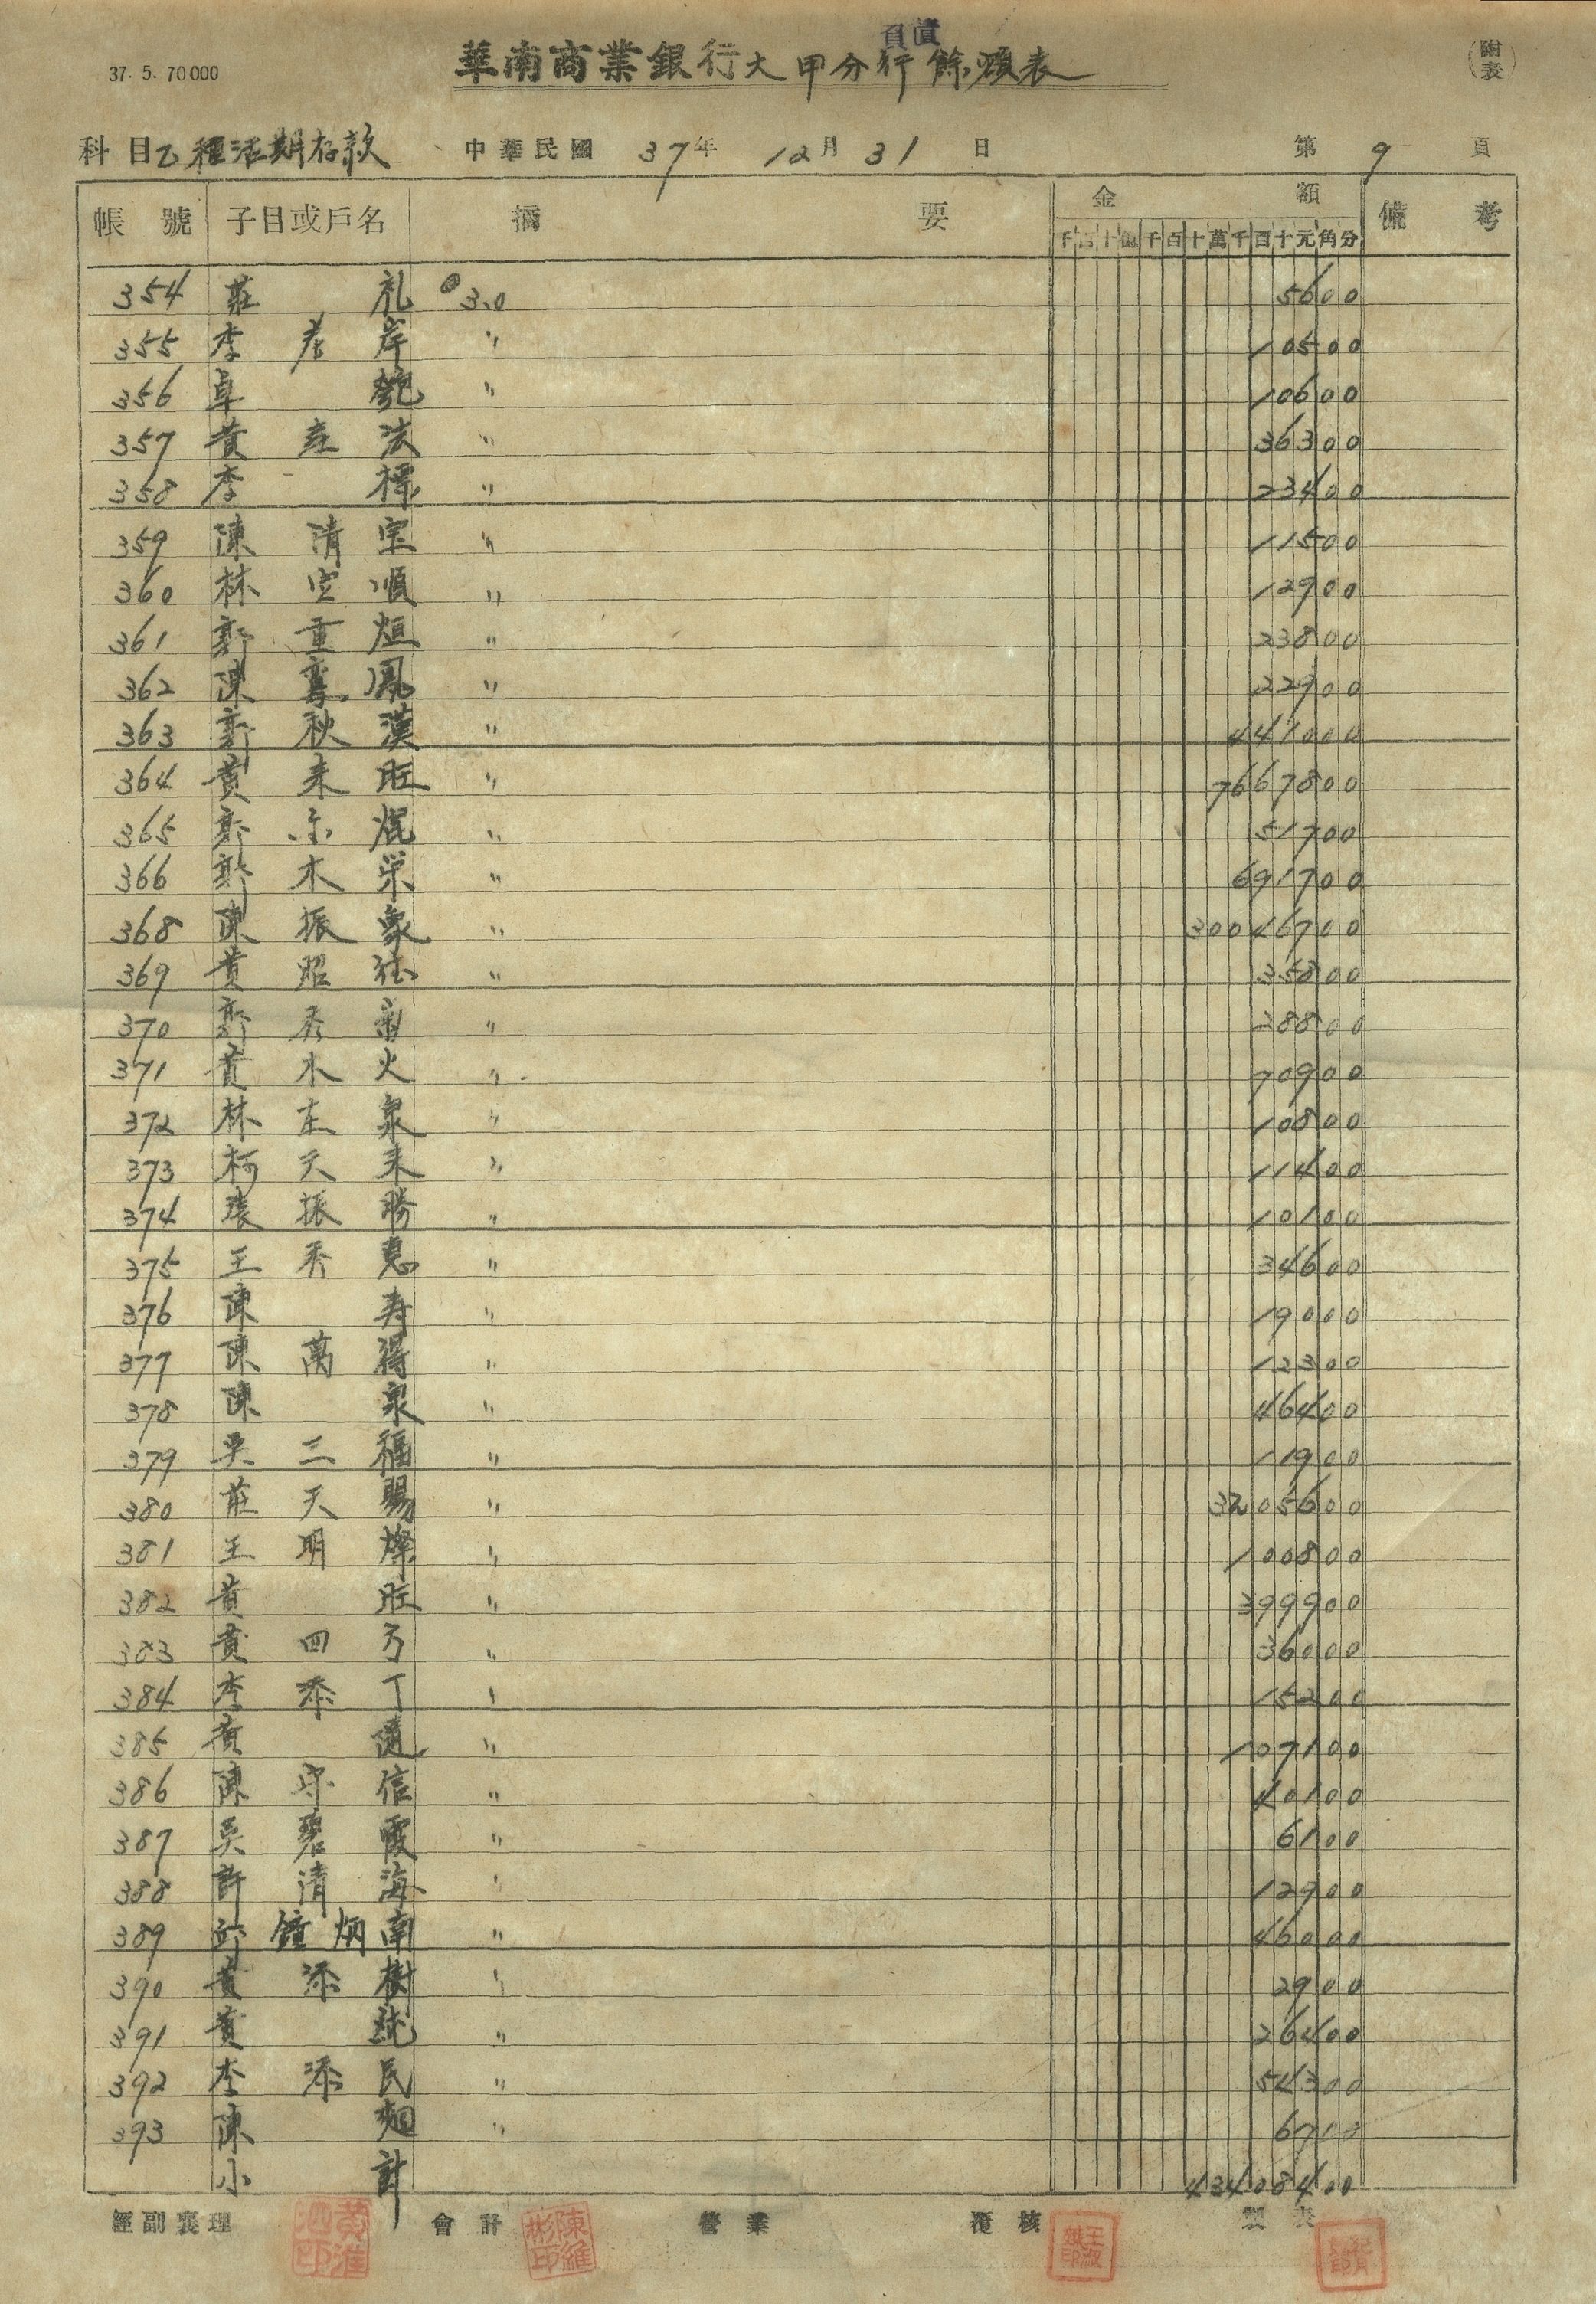 37. 5. 70000
華南商業銀行大甲分行餘額表
附表
科目乙種活期存款 中華民國 37年 12月 31日 第 9 頁
帳號 子目或戶名 摘要 金額 備考
千百十億千百十萬千百十元角分
354 莊 礼 3.0 5600
355 李 岸 〃 10500
356 卓 〃 10600
357 黃 法 〃 36300
358 李 標 〃 23400
359 陳清宝 〃 11500
360 林空順 〃 12900
361 郭重烜 〃 23800
362 陳鸞鳳 〃 22900
363 郭秋漢 〃 441000
364 黃来旺 〃 7667800
365 郭 焜 〃 51700
366 郭木栄 〃 691700
368 陳振象 〃 30046700
369 黃昭 〃 35800
370 郭秀菊 〃 28800
371 黃木火 〃 70900
372 林東泉 〃 10800
373 柯天来 〃 11400
374 張振勝 〃 10100
375 王秀惠 〃 34600
376 陳 寿 〃 19000
377 陳萬得 〃 12300
378 陳 泉 〃 46400
379 吳二福 〃 11900
380 莊天賜 〃 3205600
381 王明燦 〃 100800
382 黃 旺 〃 399900
383 黃四 〃 36000
384 李添丁 〃 15200
385 黃 〃 107100
386 陳守信 〃 40100
387 吳碧霞 〃 6100
388 許清海 〃 12900
389 邱鐘炳南 〃 46000
390 黃添樹 〃 2900
391 黃 統 〃 26400
392 李添民 〃 54300
393 陳 〃 6700
小計 43408400
經副襄理 會計 營業 覆核 製表
陳維彬印